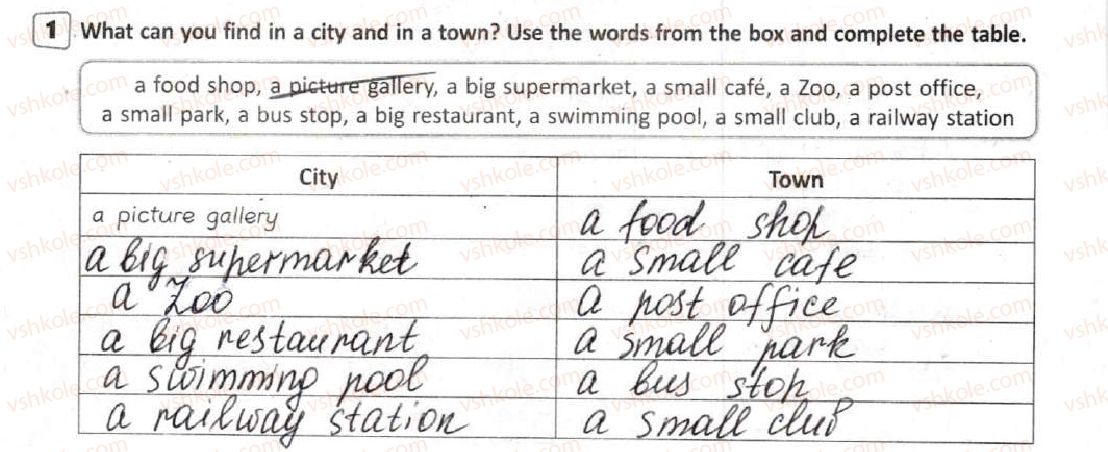 1 What can you find in a city and in a town? Use the words from the box and complete the table.
a food shop, a picture gallery, a big supermarket, a small café, a Zoo, a post office,
a small park, a bus stop, a big restaurant, a swimming pool, a small club, a railway station
City Town
a picture gallery a food shop
a big supermarket a small cafe
a Zoo a post office
a big restaurant a small park
a swimming pool a bus stop
a railway station a small club